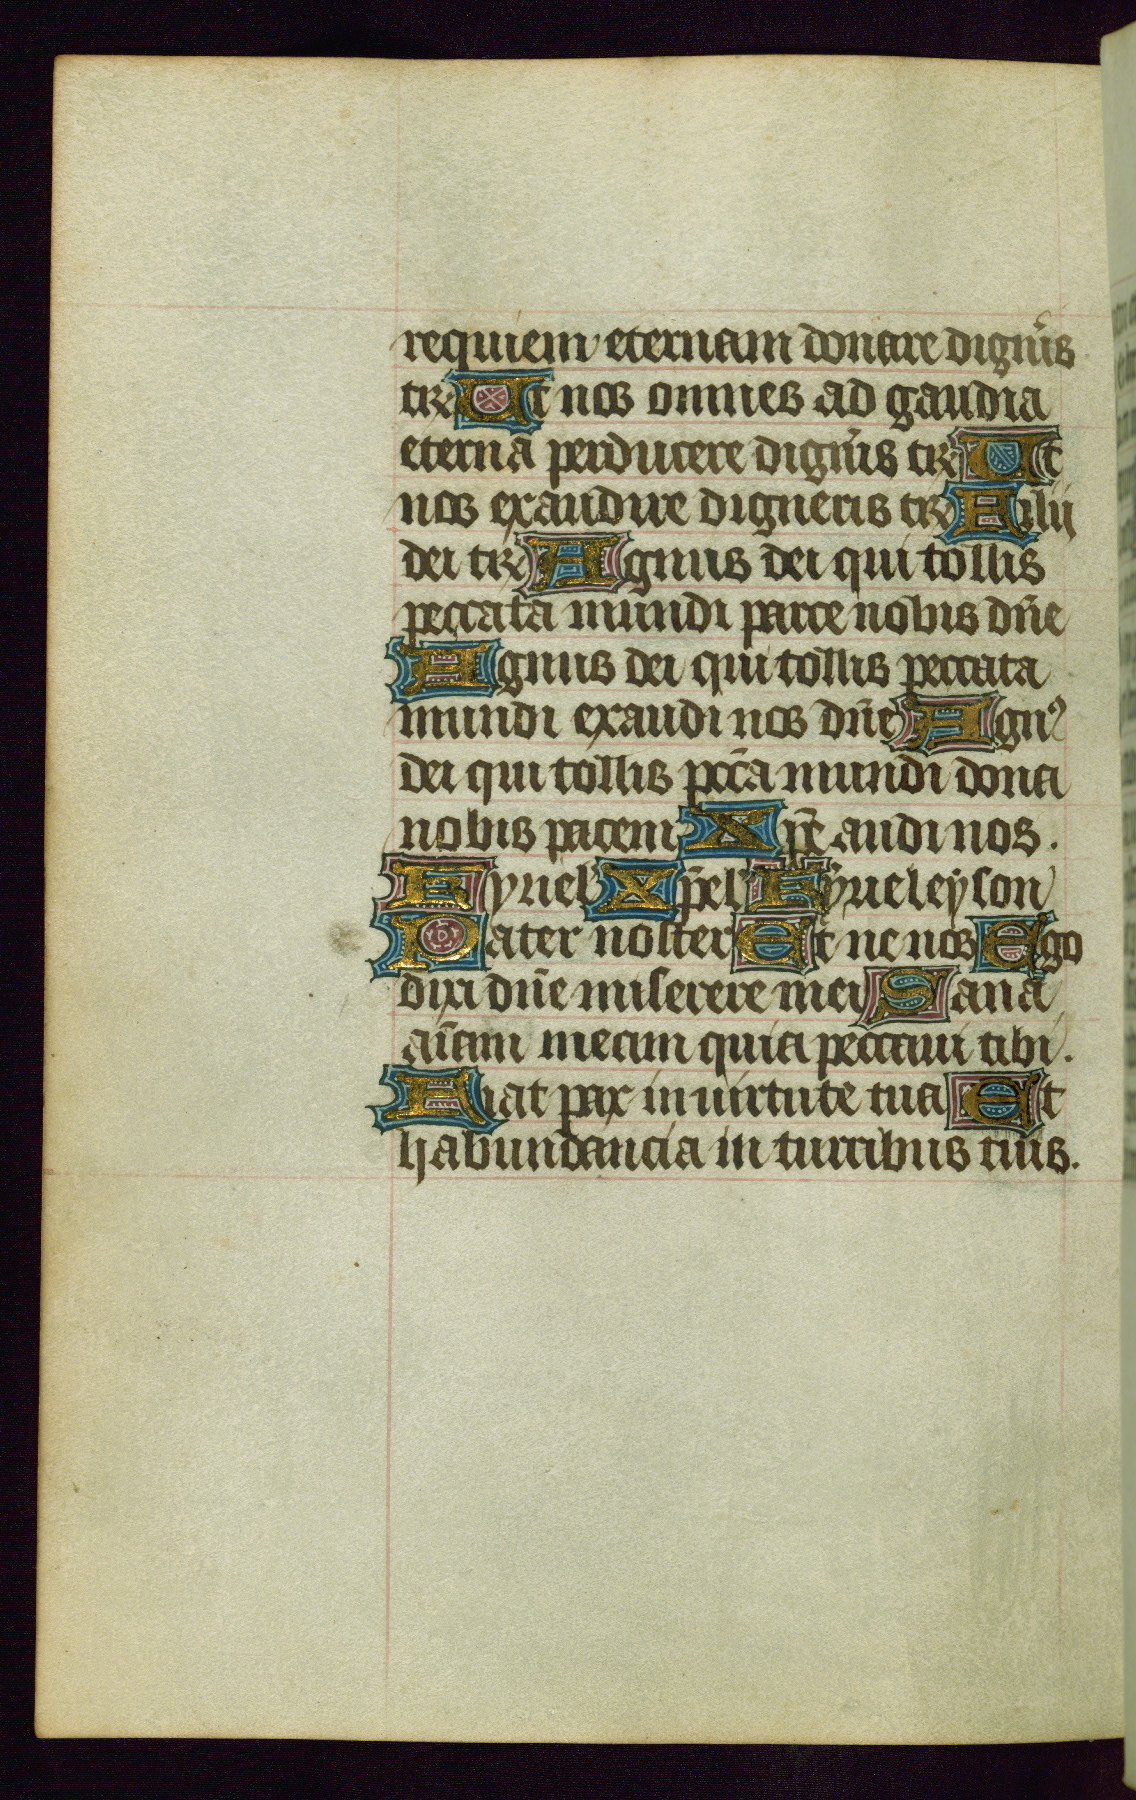 requiem eternam donare dignis
tre Ut nos omnes ad gaudia
eterna perducere dignis tr Ut
nos exaudire digneris tr Filii
dei tr Agnus dei qui tollis
peccata mundi parce nobis dñe
Agnus dei qui tollis peccata
mundi exaudi nos dñe Agnꝰ
dei qui tollis pctã mundi dona
nobis pacem Xp̃e audi nos.
Kyriel Xp̃el Kyrieleyson
Pater noster Et ne nos Ego
dixi dñe miserere mei Sana
aĩam meam quia peccaui tibi.
Fiat pax in uirtute tua Et
habundancia in turribus tuis.